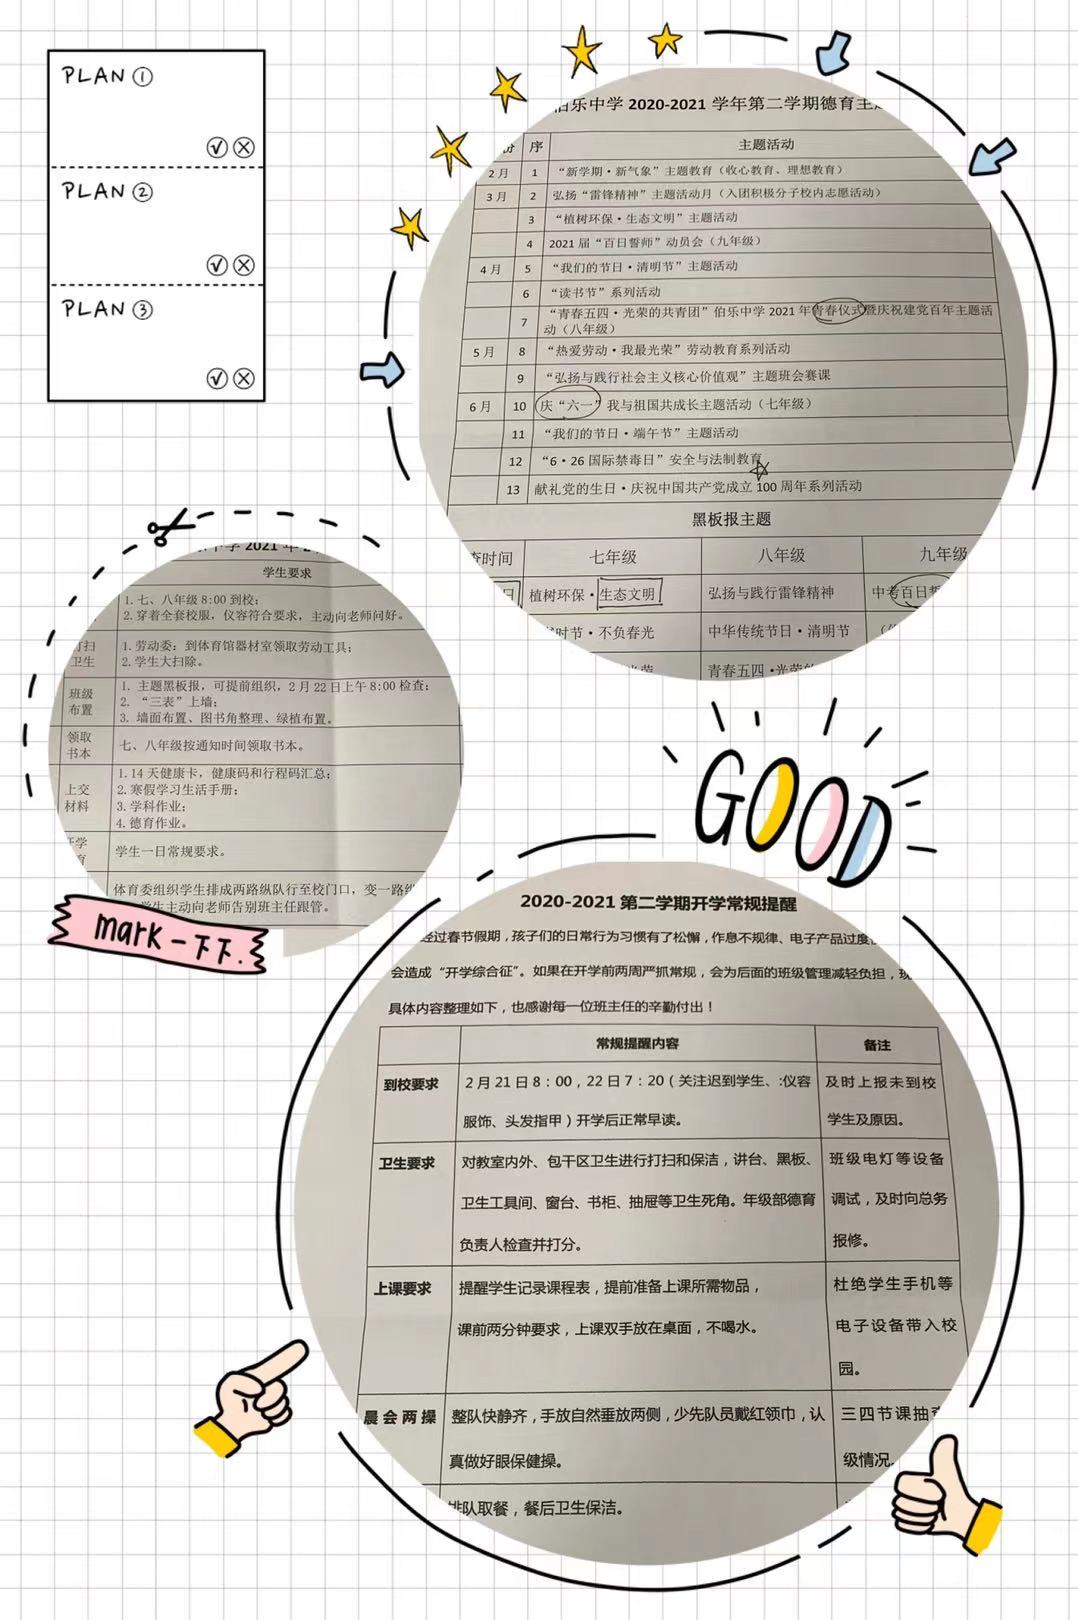 PLAN ①
PLAN ②
PLAN ③
伯乐中学 2020-2021 学年第二学期德育主
份 序 主题活动
2月 1 “新学期·新气象”主题教育（收心教育、理想教育）
3月 2 弘扬“雷锋精神”主题活动月（入团积极分子校内志愿活动）
3 “植树环保·生态文明”主题活动
4 2021 届“百日誓师”动员会（九年级）
4月 5 “我们的节日·清明节”主题活动
6 “读书节”系列活动
7 “青春五四·光荣的共青团”伯乐中学 2021 年青春仪式暨庆祝建党百年主题活
动（八年级）
5月 8 “热爱劳动·我最光荣”劳动教育系列活动
9 “弘扬与践行社会主义核心价值观”主题班会赛课
6月 10 庆“六一”我与祖国共成长主题活动（七年级）
11 “我们的节日·端午节”主题活动
12 “6·26 国际禁毒日”安全与法制教育
13 献礼党的生日·庆祝中国共产党成立 100 周年系列活动
黑板报主题
查时间 七年级 八年级 九年级
日 植树环保·生态文明 弘扬与践行雷锋精神 中考百日誓
时节·不负春光 中华传统节日·清明节
青春五四·光荣的
中学 2021 年 2
学生要求
1.七、八年级 8:00 到校；
2.穿着全套校服，仪容符合要求，主动向老师问好。
打扫
卫生
1.劳动委：到体育馆器材室领取劳动工具；
2.学生大扫除。
班级
布置
1. 主题黑板报，可提前组织，2 月 22 日上午 8:00 检查；
2. “三表”上墙；
3. 墙面布置、图书角整理、绿植布置。
领取
书本
七、八年级按通知时间领取书本。
上交
材料
1.14 天健康卡，健康码和行程码汇总；
2.寒假学习生活手册；
3.学科作业；
4.德育作业。
开学
学生一日常规要求。
体育委组织学生排成两路纵队行至校门口，变一路纵
学生主动向老师告别班主任跟管。
mark一下下.
GOOD
2020-2021 第二学期开学常规提醒
经过春节假期，孩子们的日常行为习惯有了松懈，作息不规律、电子产品过度
会造成“开学综合征”。如果在开学前两周严抓常规，会为后面的班级管理减轻负担，现
具体内容整理如下，也感谢每一位班主任的辛勤付出！
常规提醒内容 备注
到校要求 2 月 21 日 8：00，22 日 7：20（关注迟到学生、:仪容 及时上报未到校
服饰、头发指甲）开学后正常早读。 学生及原因。
卫生要求 对教室内外、包干区卫生进行打扫和保洁，讲台、黑板、 班级电灯等设备
卫生工具间、窗台、书柜、抽屉等卫生死角。年级部德育 调试，及时向总务
负责人检查并打分。 报修。
上课要求 提醒学生记录课程表，提前准备上课所需物品， 杜绝学生手机等
课前两分钟要求，上课双手放在桌面，不喝水。 电子设备带入校
园。
晨会两操 整队快静齐，手放自然垂放两侧，少先队员戴红领巾，认 三四节课抽查
真做好眼保健操。 级情况。
排队取餐，餐后卫生保洁。